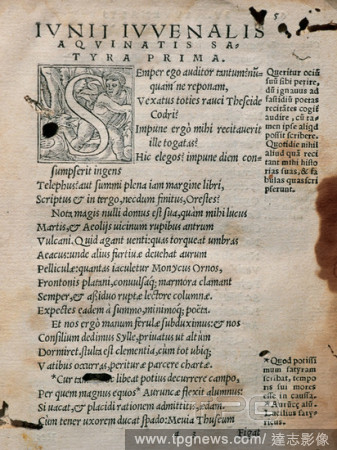 IVNII IVVENALIS
AQVINATIS SA-
TYRA PRIMA.
SEmper ego auditor tantum? nū-
quam'ne reponam,
Vexatus toties rauci Theseide
Codri?
Impune ergo mihi recitauerit
ille togatas?
Hic elegos? impune diem con-
sumpserit ingens
Telephus? aut summi plena iam margine libri,
Scriptus & in tergo, necdum finitus, Orestes?
Nota magis nulli domus est sua, quàm mihi lucus
Martis, & Aeolijs uicinum rupibus antrum
Vulcani. Quid agant uenti: quas torqueat umbras
Aeacus: unde alius furtiuæ deuehat aurum
Pelliculæ: quantas iaculetur Monycus Ornos,
Frontonis platani, conuulsaq; marmora clamant
Semper, & aßiduo ruptæ lectore columnæ.
Expectes eadem à summo, minimoq; poëta.
Et nos ergò manum ferulæ subduximus: & nos
Consilium dedimus Syllæ, priuatus ut altum
Dormiret. stulta est clementia, cum tot ubiq;
Vatibus occurras, perituræ parcere chartæ.
* Cur tamen libeat potius decurrere campo,
Per quem magnus equos * Auruncæ flexit alumnus:
Si uacat, & placidi rationem admittitis, edam.
Cùm tener uxorem ducat spado: Meuia Thuscum
Figat
Queritur ociū
suū sibi perire,
dū ignauos ad
fastidiū poëtas
recitātes cogit
audire, cū ta-
men ipse aliqd
possit scribere.
Quotidie nihil
aliud quā reci
tant mihi histo
rias suas, & fa
bulas quas scri
pserunt.
* Quod potissi
mum satyram
scribat, tempo
ris sui mores
in causa esse.
* Auruncæ alū.
Lucilius saty-
rographus.
www.tpgnews.com/ 達志影像